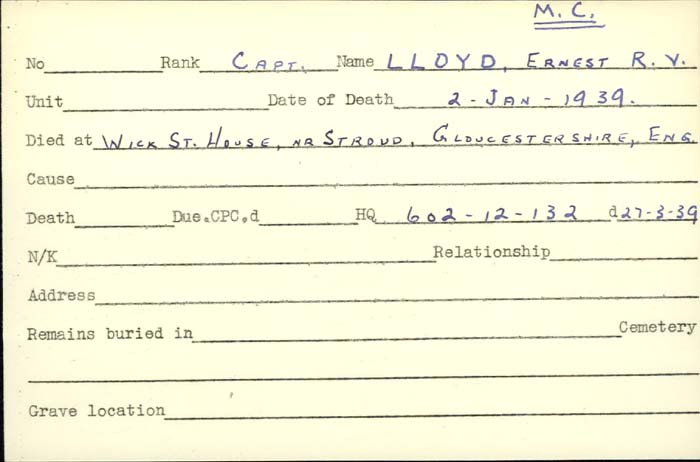 M.C.
No Rank CAPT. Name LLOYD, ERNEST R. V.
Unit Date of Death 2-JAN-1939.
Died at WICK ST. HOUSE, NR STROUD, GLOUCESTERSHIRE, ENG
Cause
Death Due.CPC,d HQ 602-12-132 d27-3-39
N/K Relationship
Address
Remains buried in Cemetery
Grave location